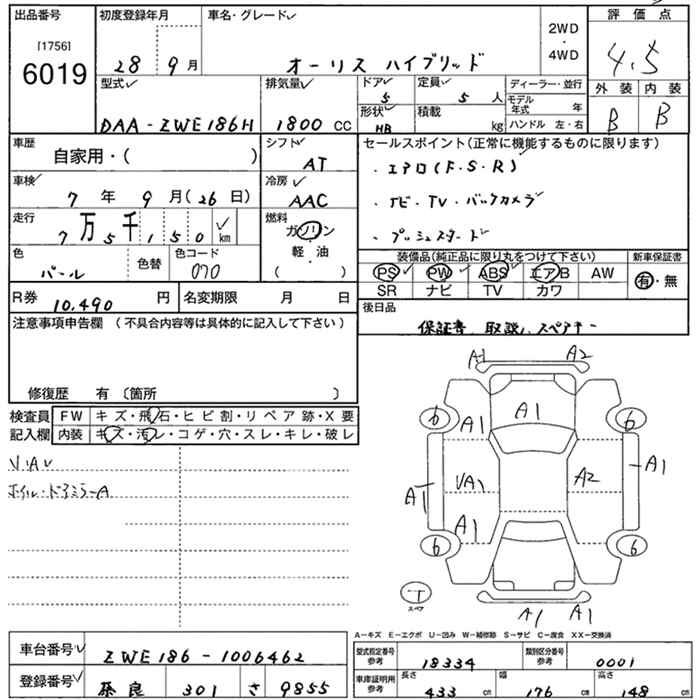 出品番号 初度登録年月 車名・グレード 評価点
[1756] 6019
28 9月 オーリス ハイブリッド 2WD・4WD 4.5
型式 排気量 ドア 5 定員 5人 ディーラー・並行 外装 内装
DAA-ZWE186H 1800cc 形状 HB 積載 kg モデル年式 年 ハンドル 左・右 B B
車歴 自家用・( ) シフト AT セールスポイント(正常に機能するものに限ります)
・エアロ(F.S.R)
車検 7年9月(26日) 冷房 AAC ・ナビ・TV・バックカメラ
走行 7万5千150km 燃料 ガソリン・軽油( ) ・プッシュスタート
色 パール 色替 色コード 070 装備品(純正品に限り丸をつけて下さい) 新車保証書
PS PW ABS エアB AW 有・無
SR ナビ TV カワ
R券 10,490円 名変期限 月 日 後日品
保証書 取説、スペアキー
注意事項申告欄(不具合内容等は具体的に記入して下さい)
修復歴 有〔箇所 〕
検査員記入欄 FW キズ・飛石・ヒビ割・リペア跡・X要
内装 キズ・汚レ・コゲ・穴・スレ・キレ・破レ
ホイル・ドアミラーA
A1 A2
6 6
A1 A1
A1 VA1 A2 A1
A1
6 6
T
スペア
A1 A1
A-キズ E-エクボ U-凹み W-補修跡 S-サビ C-腐食 XX-交換済
車台番号 ZWE186-1006462 型式指定番号 参考 18334 類別区分番号 参考 0001
登録番号 奈良 301 さ 9855 車庫証明用 参考 長さ 433cm 幅 176cm 高さ 148cm